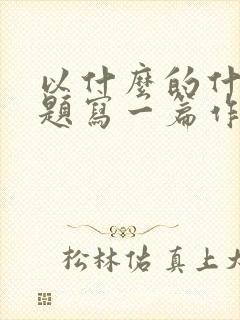 以什麼的什
題寫一篇作
松林佑真上大